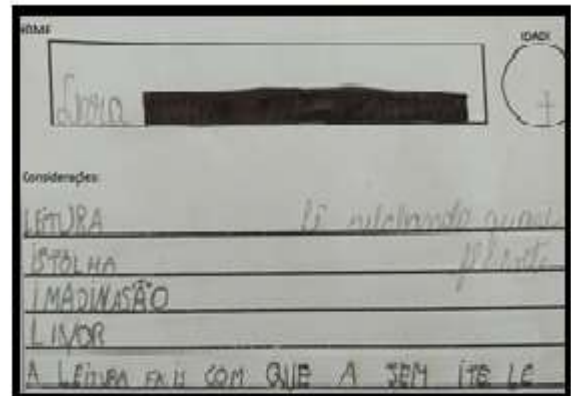 NOME
IDADE
Considerações:
LEITURA
ISTOLHA
IMADINASÃO
LIVOR
A LEITURA FAIS COM QUE A JEM ITE LE